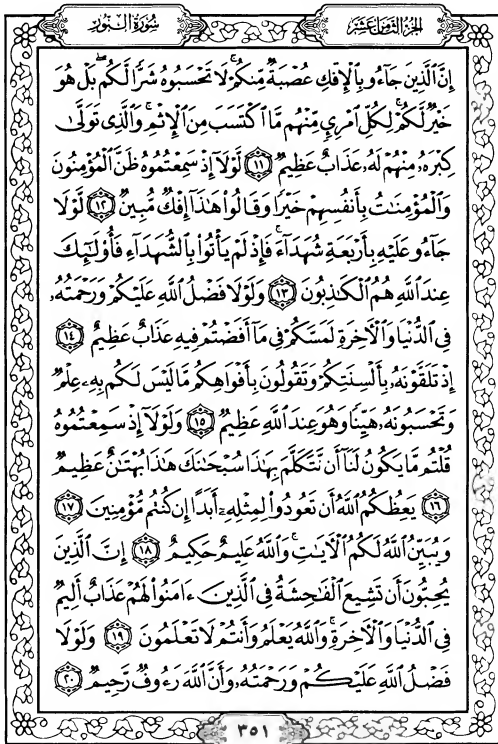 سُورَةُ النُّورِ
الجُزْءُ الثَّامِنُ عَشَرَ
إِنَّ ٱلَّذِينَ جَآءُو بِٱلْإِفْكِ عُصْبَةٌ مِّنكُمْۚ لَا تَحْسَبُوهُ شَرًّا لَّكُمۖ بَلْ هُوَ
خَيْرٌ لَّكُمْۚ لِكُلِّ ٱمْرِئٍ مِّنْهُم مَّا ٱكْتَسَبَ مِنَ ٱلْإِثْمِۚ وَٱلَّذِى تَوَلَّىٰ
كِبْرَهُۥ مِنْهُمْ لَهُۥ عَذَابٌ عَظِيمٌ ١١ لَّوْلَآ إِذْ سَمِعْتُمُوهُ ظَنَّ ٱلْمُؤْمِنُونَ
وَٱلْمُؤْمِنَٰتُ بِأَنفُسِهِمْ خَيْرًا وَقَالُوا۟ هَٰذَآ إِفْكٌ مُّبِينٌ ١٢ لَّوْلَا
جَآءُو عَلَيْهِ بِأَرْبَعَةِ شُهَدَآءَۚ فَإِذْ لَمْ يَأْتُوا۟ بِٱلشُّهَدَآءِ فَأُو۟لَٰٓئِكَ
عِندَ ٱللَّهِ هُمُ ٱلْكَٰذِبُونَ ١٣ وَلَوْلَا فَضْلُ ٱللَّهِ عَلَيْكُمْ وَرَحْمَتُهُۥ
فِى ٱلدُّنْيَا وَٱلْءَاخِرَةِ لَمَسَّكُمْ فِى مَآ أَفَضْتُمْ فِيهِ عَذَابٌ عَظِيمٌ ١٤
إِذْ تَلَقَّوْنَهُۥ بِأَلْسِنَتِكُمْ وَتَقُولُونَ بِأَفْوَاهِكُم مَّا لَيْسَ لَكُم بِهِۦ عِلْمٌ
وَتَحْسَبُونَهُۥ هَيِّنًا وَهُوَ عِندَ ٱللَّهِ عَظِيمٌ ١٥ وَلَوْلَآ إِذْ سَمِعْتُمُوهُ
قُلْتُم مَّا يَكُونُ لَنَآ أَن نَّتَكَلَّمَ بِهَٰذَا سُبْحَٰنَكَ هَٰذَا بُهْتَٰنٌ عَظِيمٌ
١٦ يَعِظُكُمُ ٱللَّهُ أَن تَعُودُوا۟ لِمِثْلِهِۦٓ أَبَدًا إِن كُنتُم مُّؤْمِنِينَ ١٧
وَيُبَيِّنُ ٱللَّهُ لَكُمُ ٱلْءَايَٰتِۚ وَٱللَّهُ عَلِيمٌ حَكِيمٌ ١٨ إِنَّ ٱلَّذِينَ
يُحِبُّونَ أَن تَشِيعَ ٱلْفَٰحِشَةُ فِى ٱلَّذِينَ ءَامَنُوا۟ لَهُمْ عَذَابٌ أَلِيمٌ
فِى ٱلدُّنْيَا وَٱلْءَاخِرَةِۚ وَٱللَّهُ يَعْلَمُ وَأَنتُمْ لَا تَعْلَمُونَ ١٩ وَلَوْلَا
فَضْلُ ٱللَّهِ عَلَيْكُمْ وَرَحْمَتُهُۥ وَأَنَّ ٱللَّهَ رَءُوفٌ رَّحِيمٌ ٢٠
٣٥١